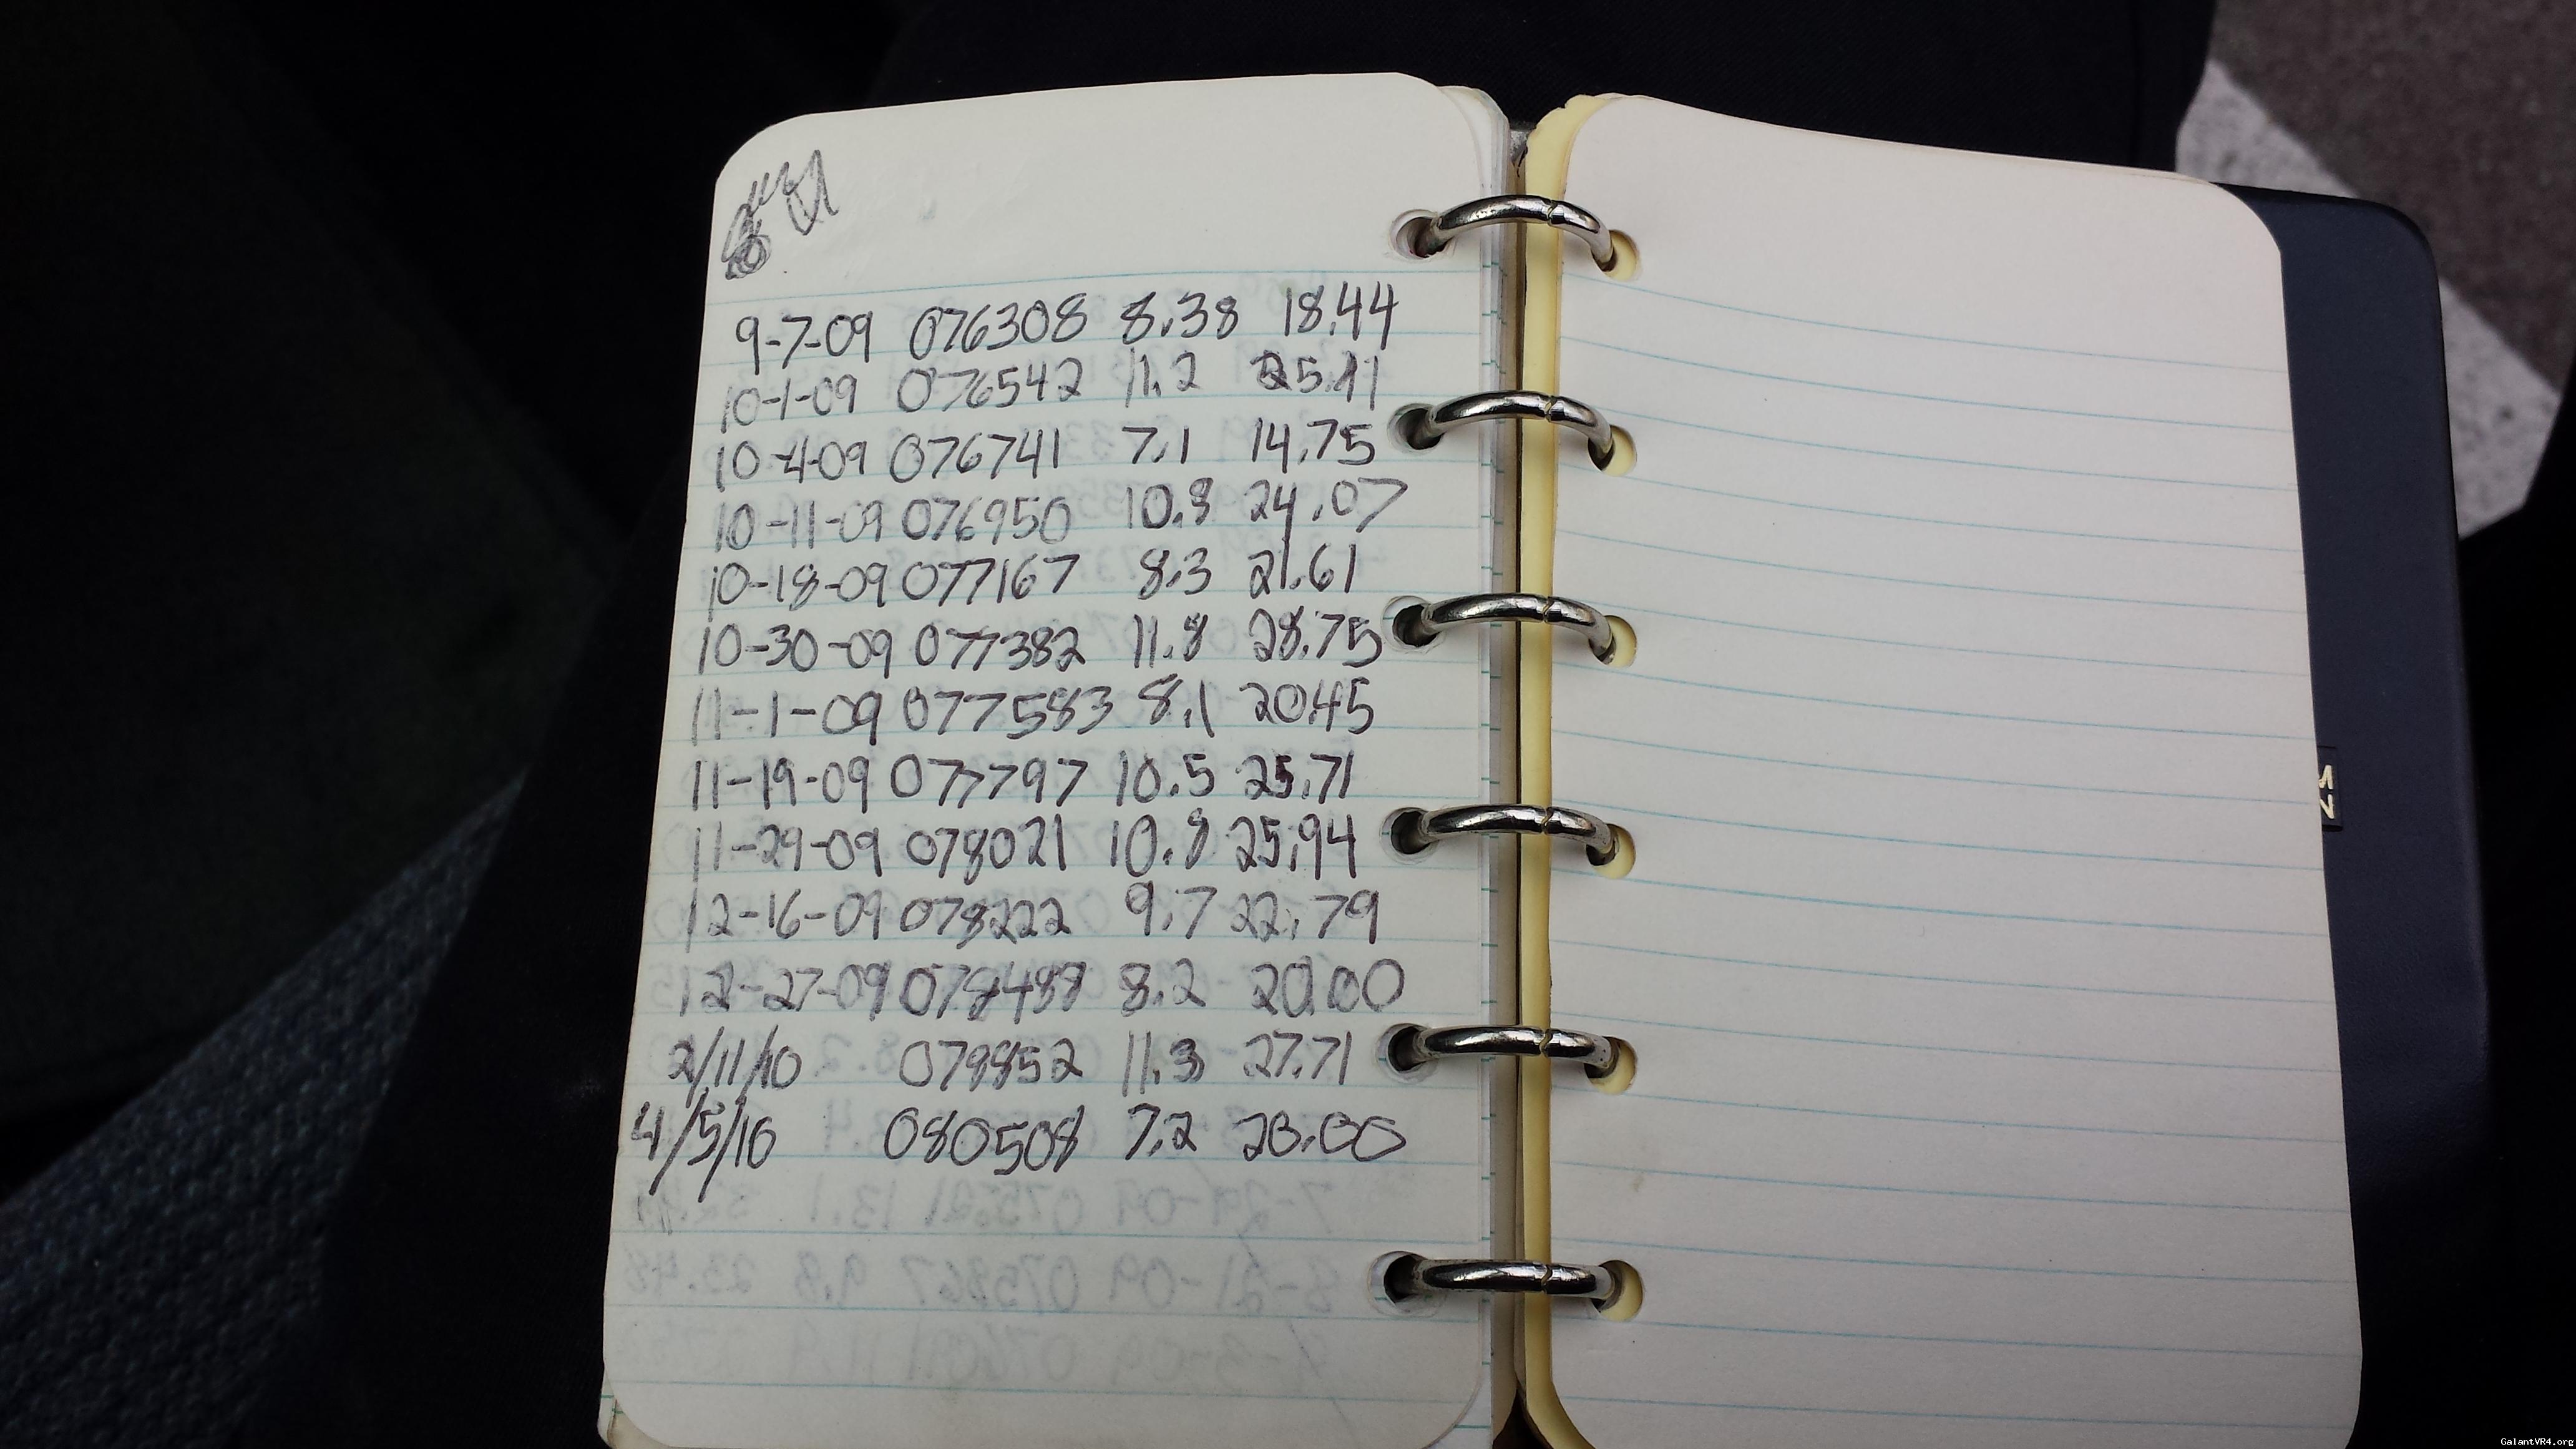 9-7-09 076308 8.38 18.44
10-1-09 076542 11.2 25.11
10-4-09 076741 7.1 14.75
10-11-09 076950 10.8 24.07
10-18-09 077167 8.3 21.61
10-30-09 077382 11.8 28.75
11-1-09 077583 8.1 20.45
11-19-09 077797 10.5 25.71
11-29-09 078021 10.8 25.94
12-16-09 078222 9.7 22.79
12-27-09 078488 8.2 20.00
2/11/10 079852 11.3 27.71
4/5/10 080508 7.2 20.00
GalantVR4.org